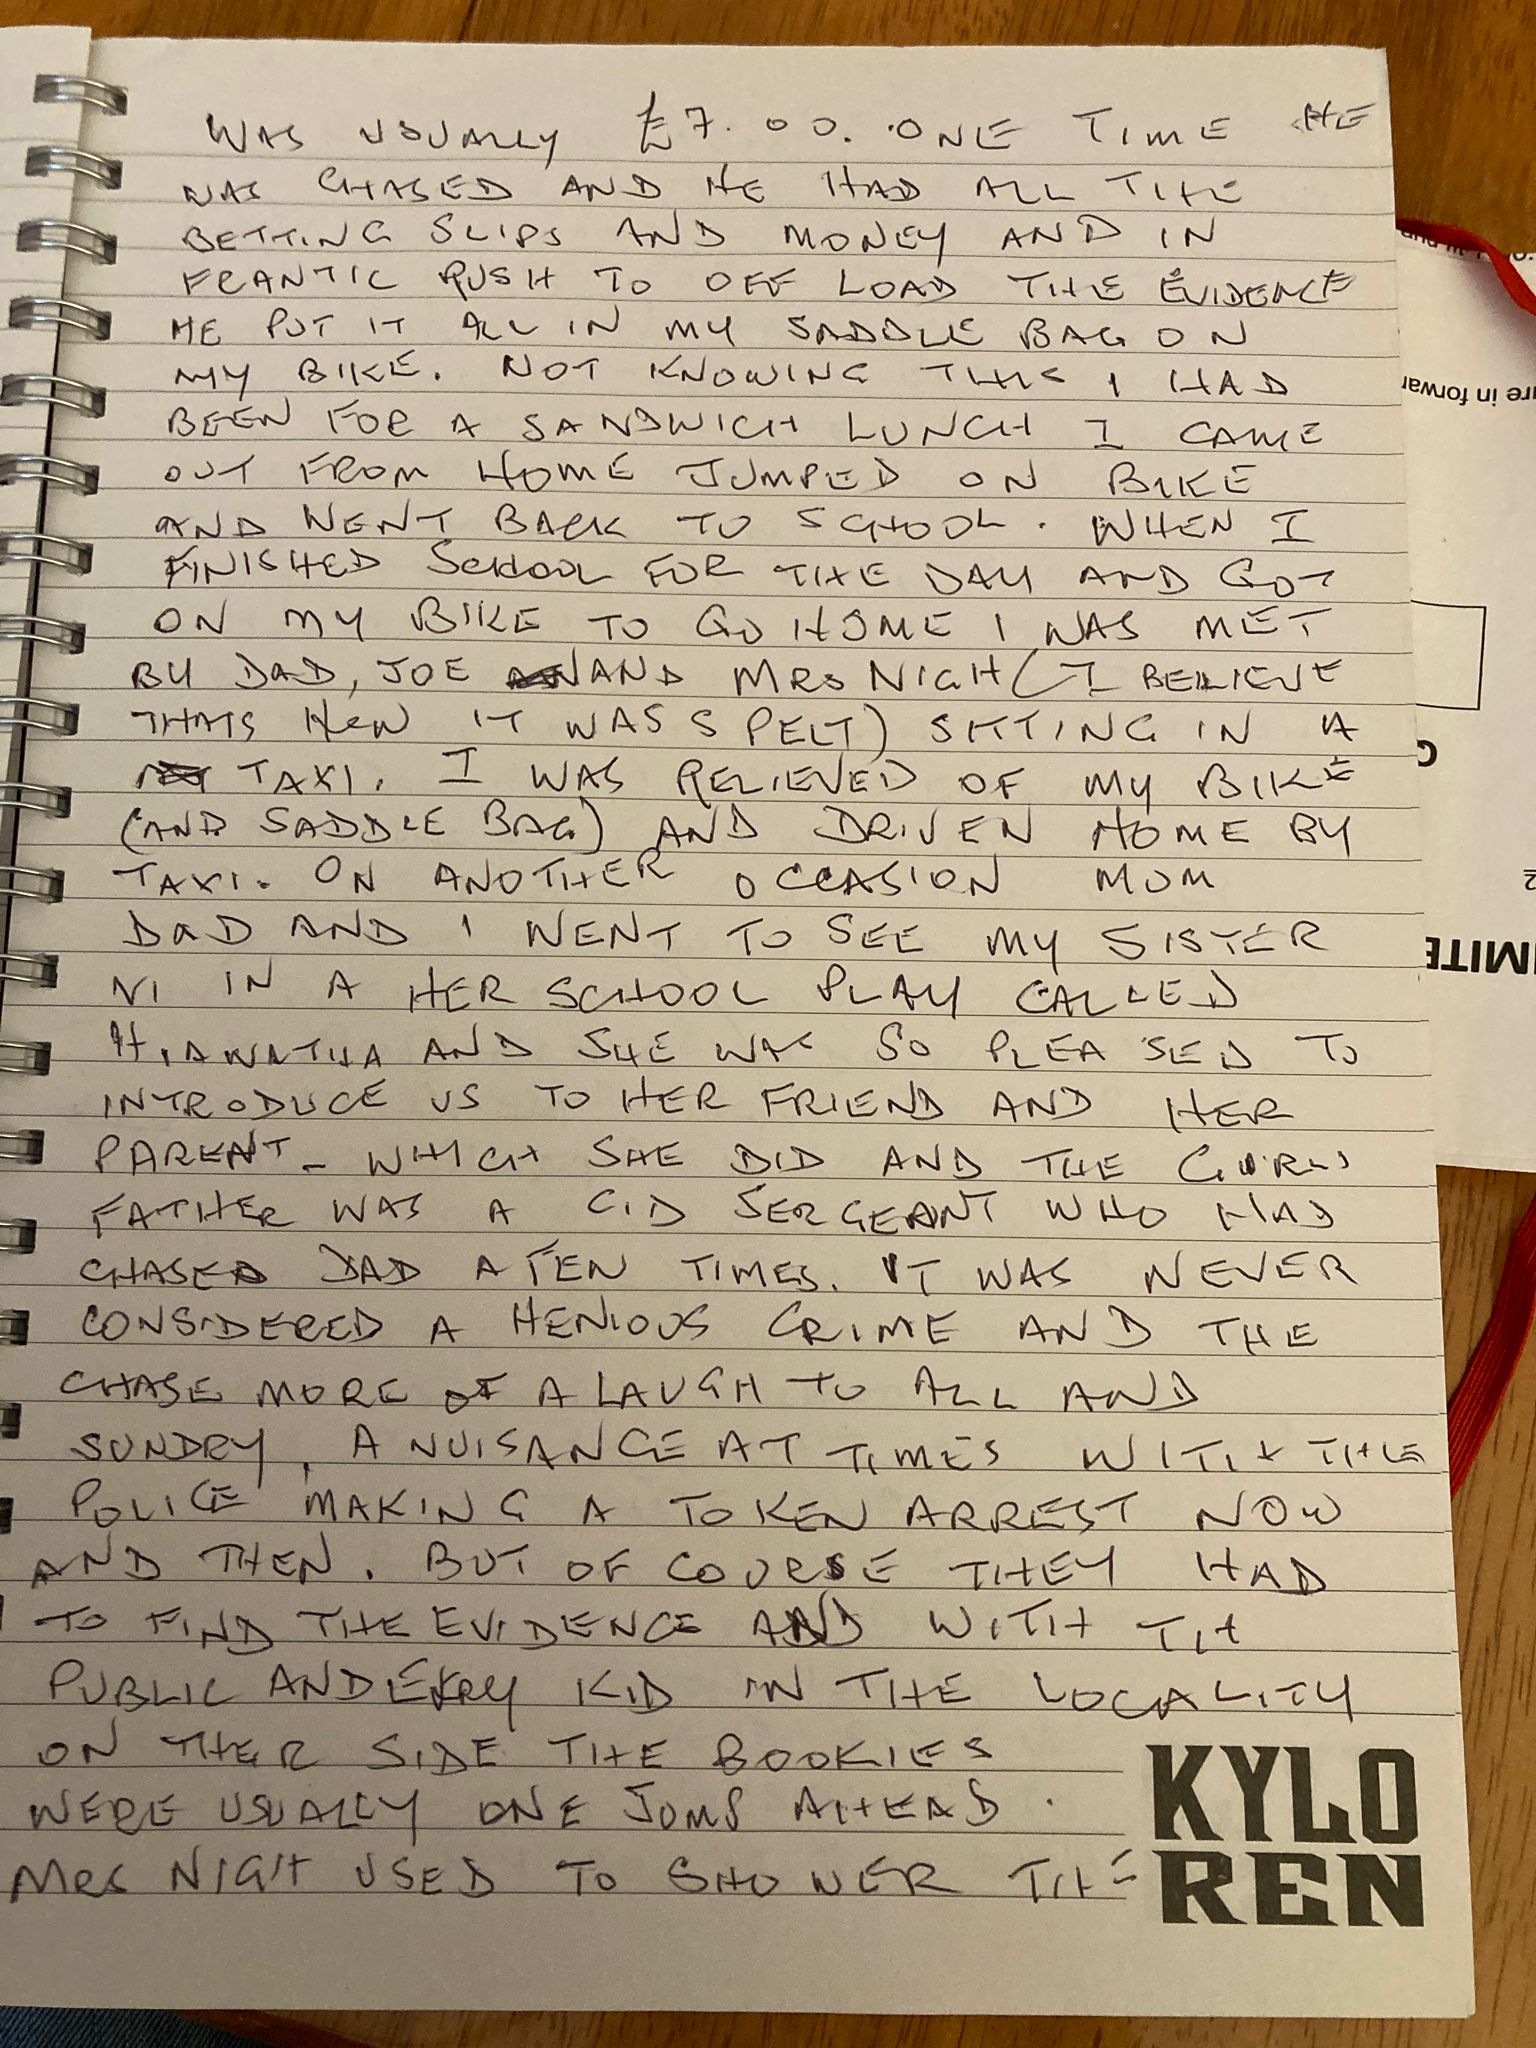 WAS USUALLY £7.00. ONE TIME HE
WAS CHASED AND HE HAD ALL THE
BETTING SLIPS AND MONEY AND IN
FRANTIC RUSH TO OFF LOAD THE EVIDENCE
HE PUT IT ALL IN MY SADDLE BAG ON
MY BIKE. NOT KNOWING THIS I HAD
BEEN FOR A SANDWICH LUNCH I CAME
OUT FROM HOME JUMPED ON BIKE
AND WENT BACK TO SCHOOL. WHEN I
FINISHED SCHOOL FOR THE DAY AND GOT
ON MY BIKE TO GO HOME I WAS MET
BY DAD, JOE AND MRS NIGH (I BELIEVE
THATS HOW IT WAS SPELT) SITTING IN A
TAXI. I WAS RELIEVED OF MY BIKE
(AND SADDLE BAG) AND DRIVEN HOME BY
TAXI. ON ANOTHER OCCASION MUM
DAD AND I WENT TO SEE MY SISTER
VI IN A HER SCHOOL PLAY CALLED
HIAWATHA AND SHE WAS SO PLEASED TO
INTRODUCE US TO HER FRIEND AND HER
PARENT - WHICH SHE DID AND THE GIRLS
FATHER WAS A CID SERGEANT WHO HAD
CHASED DAD A FEW TIMES. IT WAS NEVER
CONSIDERED A HENIOUS CRIME AND THE
CHASE MORE OF A LAUGH TO ALL AND
SUNDRY, A NUISANCE AT TIMES WITH THE
POLICE MAKING A TOKEN ARREST NOW
AND THEN. BUT OF COURSE THEY HAD
TO FIND THE EVIDENCE AND WITH TH
PUBLIC AND EVERY KID IN THE LOCALITY
ON THER SIDE THE BOOKIES
WERE USUALLY ONE JUMP AHEAD.
MRS NIGH USED TO SHOWER THE
KYLO
REN
are in forwar